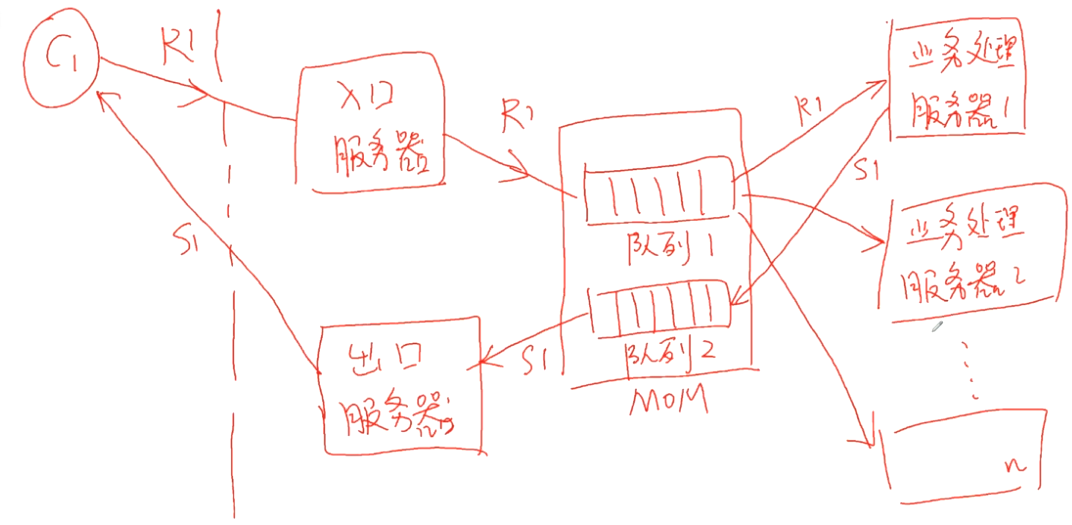 C1
R1
入口
服务器
R1
队列1
队列2
MOM
R1
S1
业务处理
服务器1
业务处理
服务器2
n
S1
出口
服务器
S1